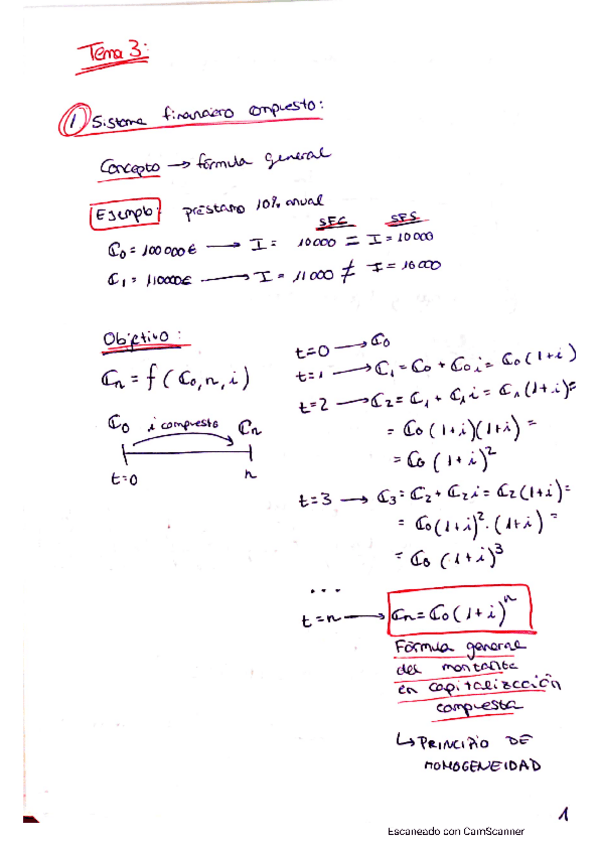 Tema 3:
1 Sistema financiero compuesto:
Concepto → fórmula general
Ejemplo: préstamo 10% anual
SFC SFS
C₀ = 100000€ → I = 10000 = I = 10000
C₁ = 110000€ → I = 11000 ≠ I = 10000
Objetivo:
Cn = f (C₀, n, i)
C₀ i compuesto Cn
t=0 n
t=0 → C₀
t=1 → C₁ = C₀ + C₀i = C₀ (1+i)
t=2 → C₂ = C₁ + C₁i = C₁ (1+i) =
= C₀ (1+i)(1+i) =
= C₀ (1+i)²
t=3 → C₃ = C₂ + C₂i = C₂ (1+i) =
= C₀ (1+i)² · (1+i) =
= C₀ (1+i)³
...
t=n → Cn = C₀ (1+i)ⁿ
Fórmula general
del montante
en capitalización
compuesta
↳ PRINCIPIO DE
HOMOGENEIDAD
1
Escaneado con CamScanner